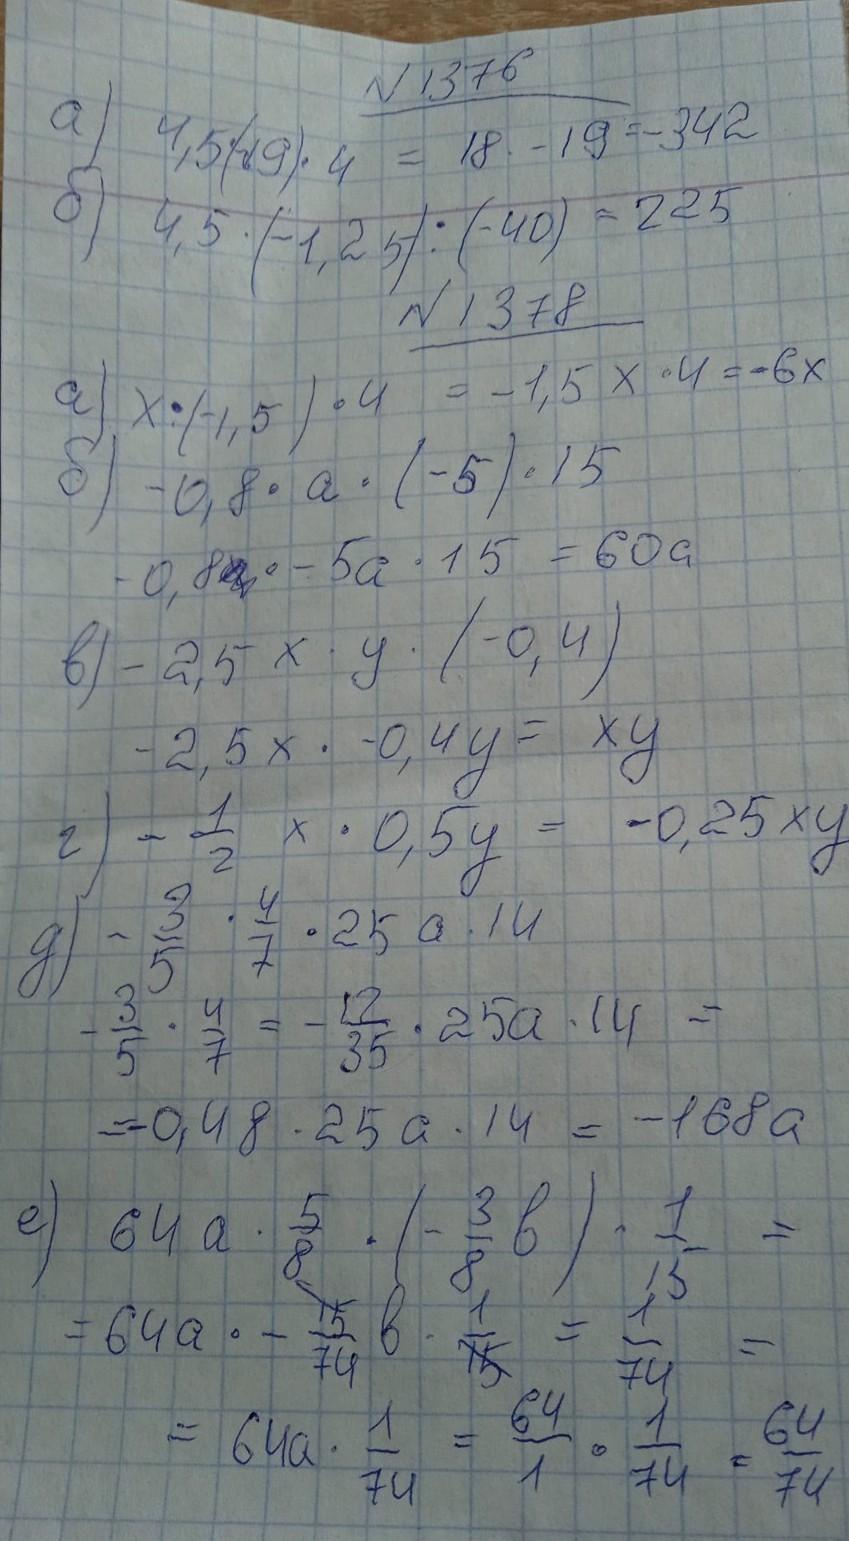 №1376
а) 4,5(-19)·4 = 18·-19=-342
б) 4,5·(-1,25):(-40) = 225
№1378
а) x·(-1,5)·4 = -1,5x·4=-6x
б) -0,8·a·(-5)·15
-0,8·-5a·15 = 60a
в) -2,5x·y·(-0,4)
-2,5x·-0,4y= xy
г) -1/2 x·0,5y = -0,25xy
д) -3/5·4/7·25a·14
-3/5·4/7 = -12/35·25a·14 =
=-0,48·25a·14 = -168a
е) 64a·5/8·(-3/8 b)·1/15 =
=64a·-15/74 b·1/15 = 1/74 =
= 64a·1/74 = 64/1·1/74 = 64/74